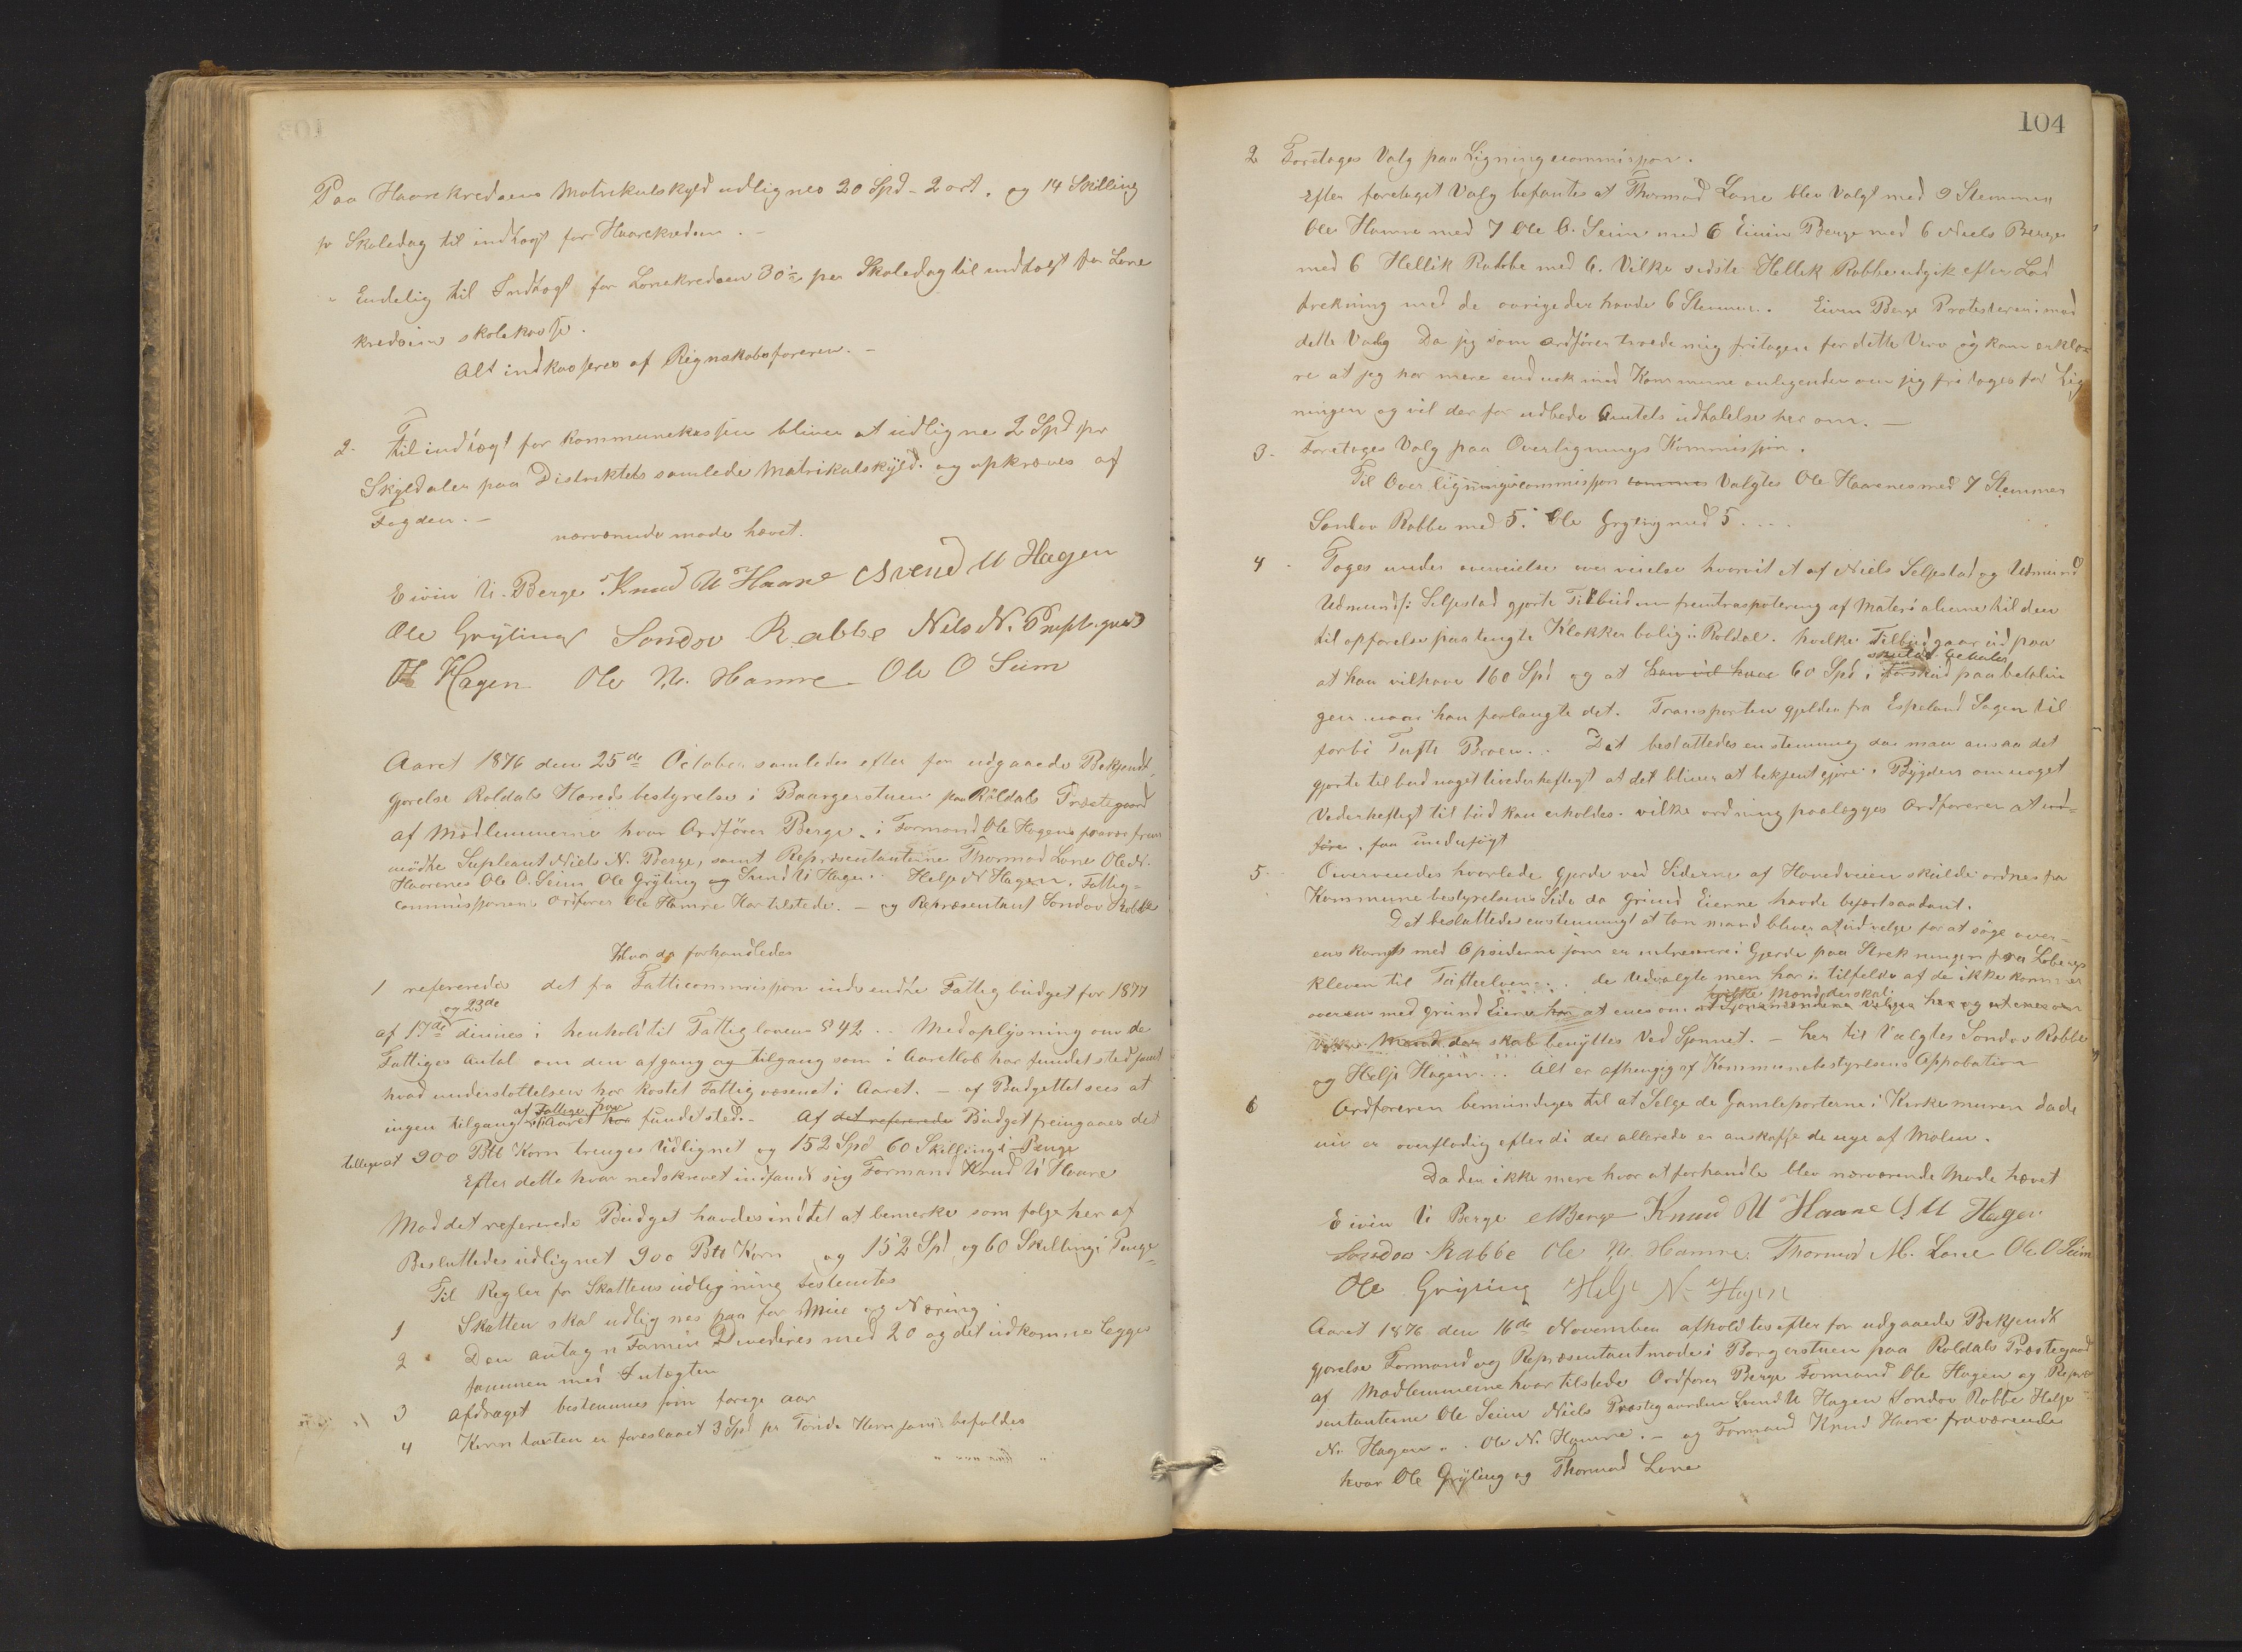 Paa Haarekredsens Matrikulskyld udlignes 20 Spd - 2 ort. og 14 Skilling
pr Skoledag til indtægt for Haarekredsen. -
" Endelig til Indtægt for Lonekredsen 30 per Skoledag til indtægt for Lone
kredsens skolekasse.
Alt indkasseres af Regnskabsføreren. -
2. Til indtægt for kommunekassen bliver at udligne 2 Spd pr
Skyldaler paa Distriktets samlede Matrikulskyld. og opkræves af
Fogden. -
nærværende møde hævet.
Eivin U. Berge Knud U Haare Svend U Hagen
Ole Grÿting Sondov Rabbe Nils N. Præstegard
Hagen Ole N. Hamre Ole O Seim
Aaret 1876 den 25de October samledes efter for udgaaede Bekjendt
gjørelse Røldals Herredsbestyrelse i Baargerstuen paa Røldals Præstegaard
af Medlemmerne hvar Ordfører Berge. i Formand Ole Hagens fravær frem
mødte Supleant Niels N. Berge, samt Repræsentanterne Thormod Lone Ole N.
Haarenes Ole O. Seim Ole Grÿting og Svend U Hagen. Helje N Hagen. Fattig-
commissjonens Ordfører Ole Hamre Har tilstede. - og Repræsentant Sondov Rabbe
Hvor da forhandledes
1 refererede det fra Fatticommissjon indsendte Fattigbudget for 1877
og 23de
af 17de dennes i henhold til Fattiglovens § 42. Med oplysning om de
Fattiges Antal om den afgang og tilgang som i Aaretløb har fundet sted samt
hvad understøttelsen har kostet Fattigvæsenet i Aaret. - af Budgettet sees at
af Fattige paa
ingen tilgang i Aaret har fundet sted. - Af det refererede Budget freingaaer det
tillige at 900 Btt Korn trenges Udlignet og 152 Spd 60 Skilling i Penge
Efter dette hvar nedskrevet indfandt sig Formand Knud U Haare
Mod det refererede Budget havdes inditet at bemerke som følge her af
Besluttedes udlignet 900 Btt Korn og 152 Spd og 60 Skilling i Penge
Til Regler for Skattens udligning bestemtes
1 Skatten skal udlignes paa for Mue og Næring.
2 Den antagn Formue Divederes med 20 og det udkomne legges
sammen med Intægten
3 Afdraget bestemmes som forige aar
4 Korn taxten er foreslaaet 3 Spd pr Tønde Hern som befaldes
104
2 Foretages Valg paa Ligningscommisjon.
Efter foretaget Valg befantes at Thormod Lone blev Valgt med 9 Stemmer
Ole Hamre med 7 Ole O. Seim med 6 Eivin Berge med 6 Niels Berge
med 6 Hellik Rabbe med 6. Vilke sidste Hellik Rabbe udgik efter Lod
trekning med de øvrige der havde 6 Stemmer. Eivin Berge Protesterer imod
dette Valg Da jeg som ordfører troede mig fritagen for dette Verv og kan erklæ-
re at jeg har mere end nok med Kommune anligender om jeg fritages for Lig
ningen og vil der for udbede Amtets udtalelse her om. -
3. Foretages Valg paa Overlignings Kommissjon.
Til Overligningscommissjon Valgtes Ole Haarenes med 7 Stemmer
Sondov Rabbe med 5. Ole Grÿting med 5 ....
4 Toges under overveielse hvorvit et af Niels Seljestad og Udmund
Udmunds: Seljestad gjorte Tilbud om fremtransportering af Materialierne til den
til opførelse paatengte Klokkerbolig i Røldal. hvilke Tilbud gaar ud paa
skulde betales
at han vil have 160 Spd og at han vil have 60 Spd i Forskud paa betalin
gen naar han forlangte det. Transporten gjelder fra Espeland Sagen til
forbi Tufte Broen. Det besluttedes enstemmig da man ansaa det
gjorte tilbud noget uvederheftigt at det bliver at bekjentgjøre i Bÿgden om noget
Vederheftigt tilbud kan erholdes. vilke ordning paalægges Ordføreren at ud-
føre. faa undersøgt
5 Overveiedes hvorledes Gjerde ved Siderne af Hovedveien skulde ordnes fra
Kommunebestyrelsens Side da Grund Eierne havde begjært saadant.
Det besluttedes enstemmigt at toe mand bliver at udvelge for at søge over-
ens komst med Opsidderne som er interesseret i Gjerde paa Strekningen fra Løbergs
kleven til Tufteelven... de Udvalgte men har i tilfelde af de ikke kommer
hvilke Mand der skal
overens med Grund Eierne har at enes om
Mand der skal benyttes Ved Skjønnet. - her til Valgtes Sondov Rabbe
og Helje Hagen... Alt er afhengig af Kommunebestyrelsens Approbation
6 Ordføreren bemyndiges til at Selge de Gamle porterne i Kirkemuren da de
nu er overflødig efterdi der allerede er anskaffe de nye af Malm.
Da der ikke mere hvar at forhandle blev nærværende Møde hævet
Eivin U Berge N Berge Knud U Haare S U Hagen
Sondov Rabbe Ole N. Hamre. Thormod M. Lone Ole O Seim
Ole Grÿting Helje N. Hagen
Aaret 1876 den 16de November afholdtes efter for udgaaede Bekjendt
gjørelse Formand og Repræsentantmøde i Borgerstuen paa Røldals Præstegaard
af Medlemmerne hvar tilstede Ordfører Berge Formand Ole Hagen og Repræ
sentanterne Ole Seim Niels Præstegaarden Svend U Hagen Sondov Rabbe Helje
N. Hagen. Ole N. Hamre. - og Formand Knud Haare fraværende
hvar Ole Grÿting og Thormod Lone